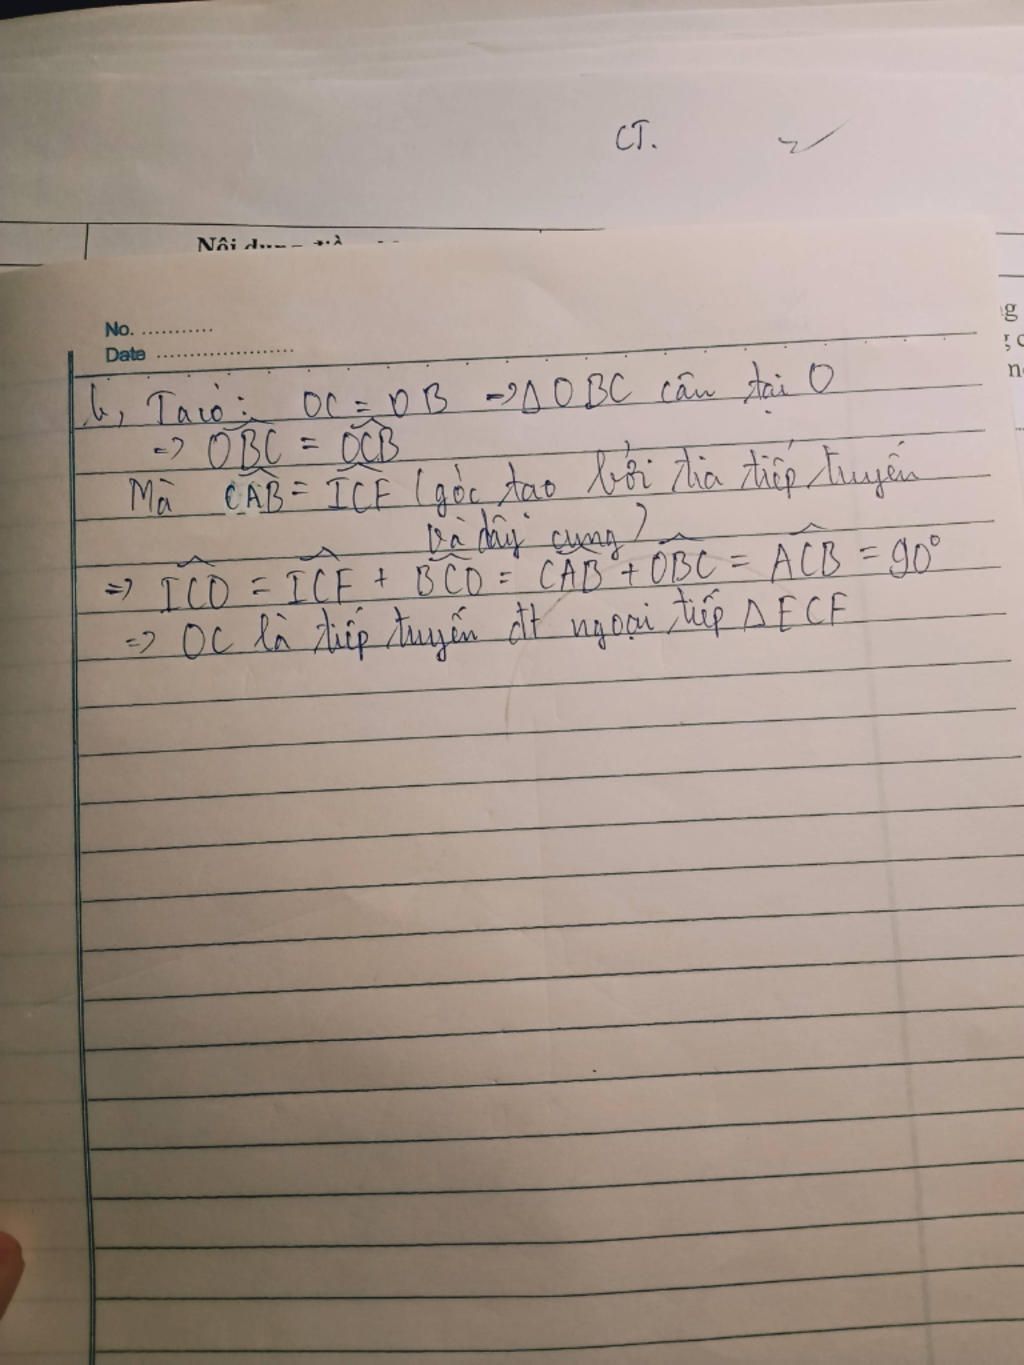 CT.
Nội dung
No. ...........
Date .....................
b, Ta có: OC = OB => Δ OBC cân tại O
=> OBC = OCB
Mà CAB = ICF (góc tạo bởi tia tiếp tuyến
và dây cung)
=> ICO = ICF + BCO = CAB + OBC = ACB = 90°
=> OC là tiếp tuyến đt ngoại tiếp Δ ECF